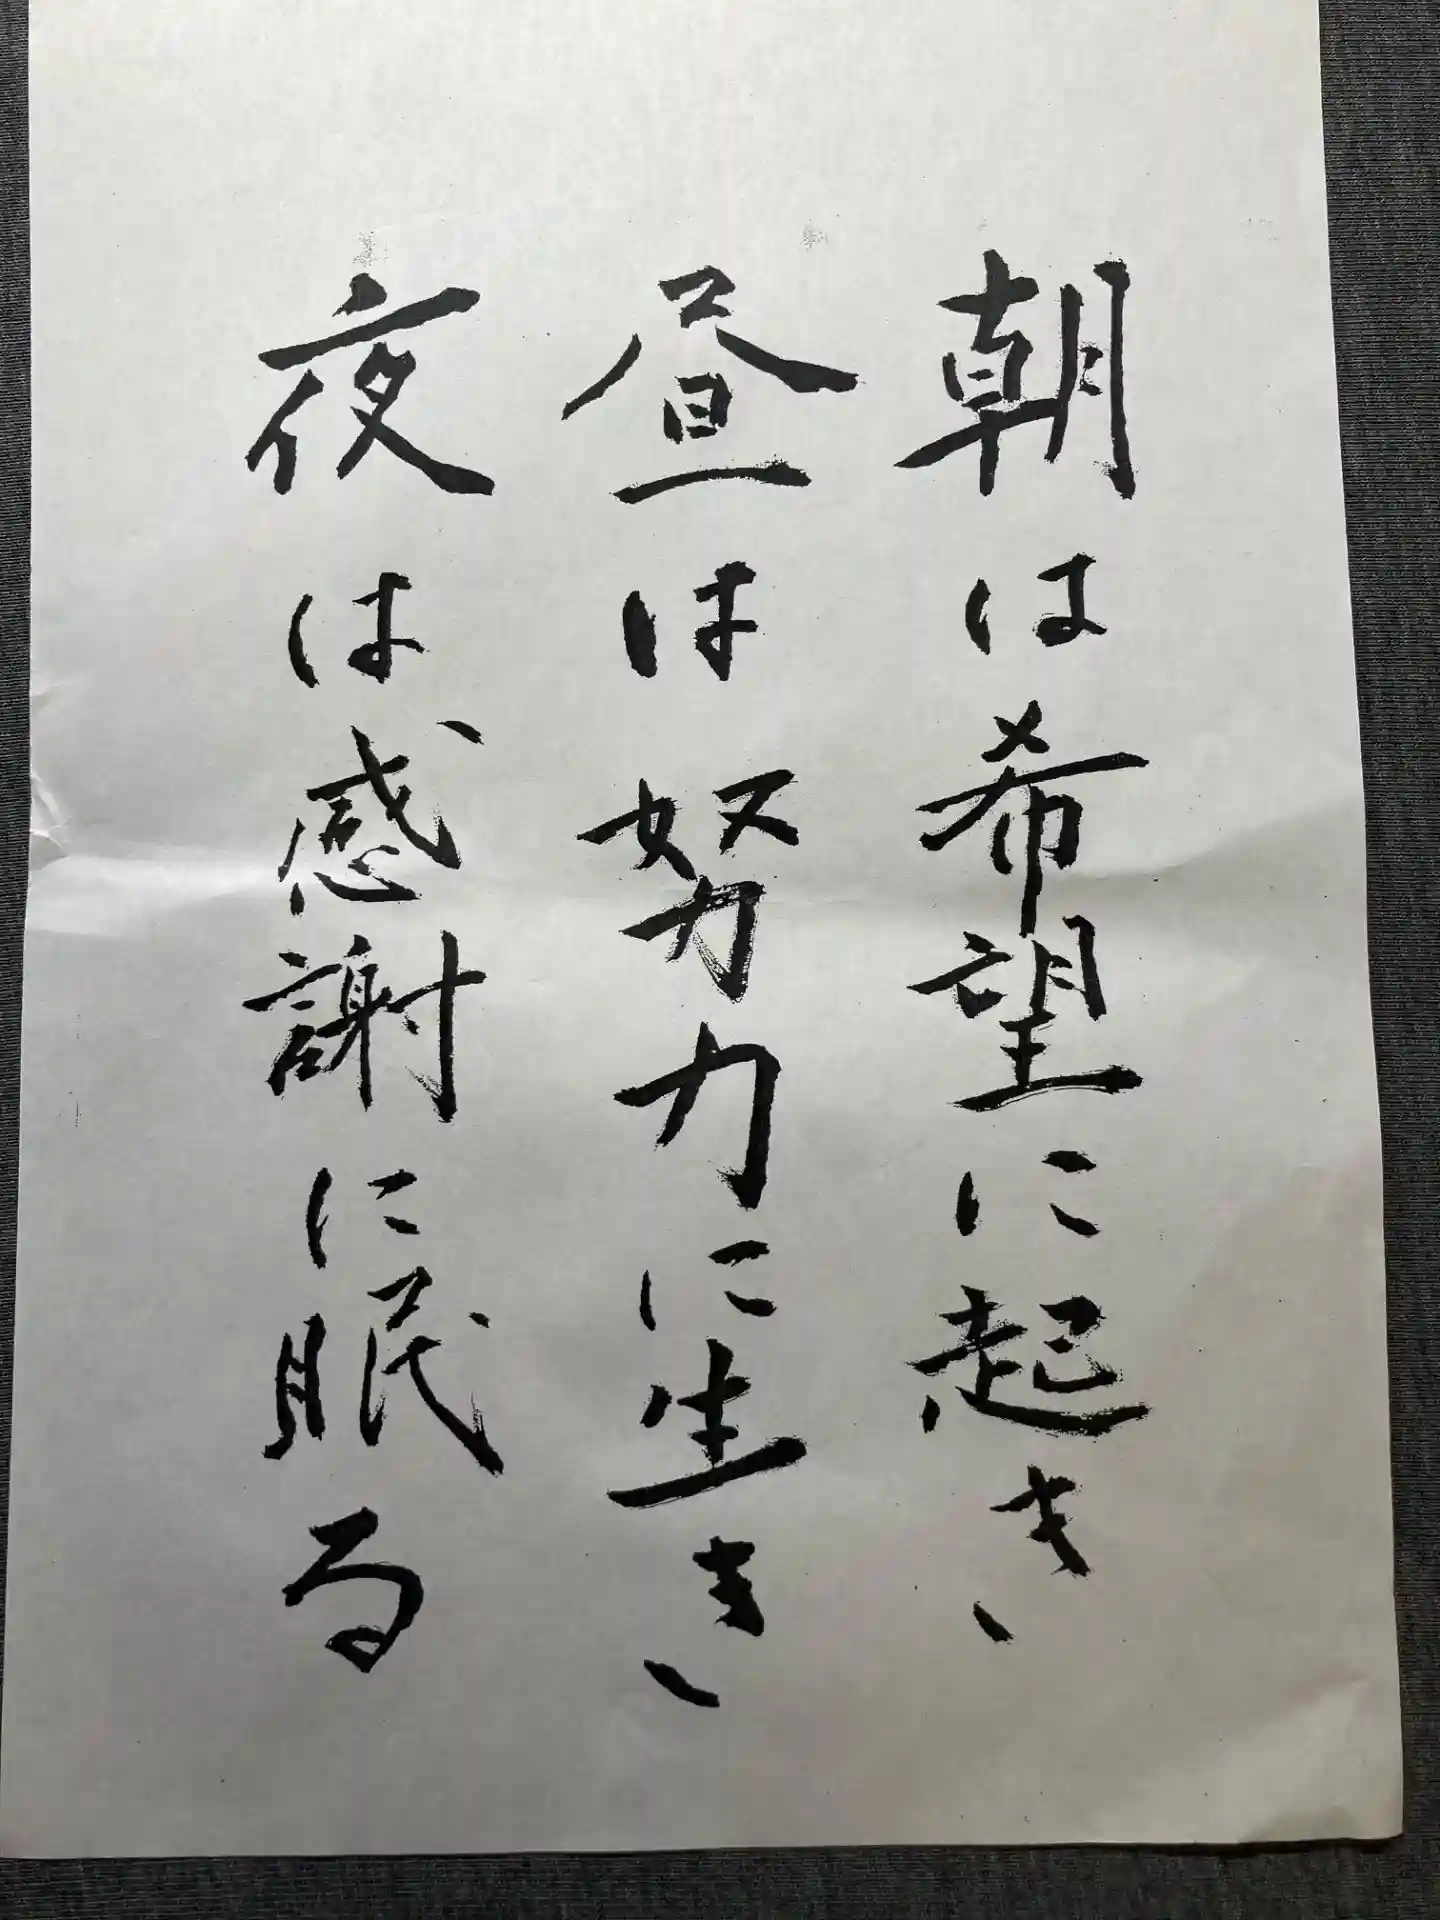 朝は希望に起き、
昼は努力に生き、
夜は感謝に眠る